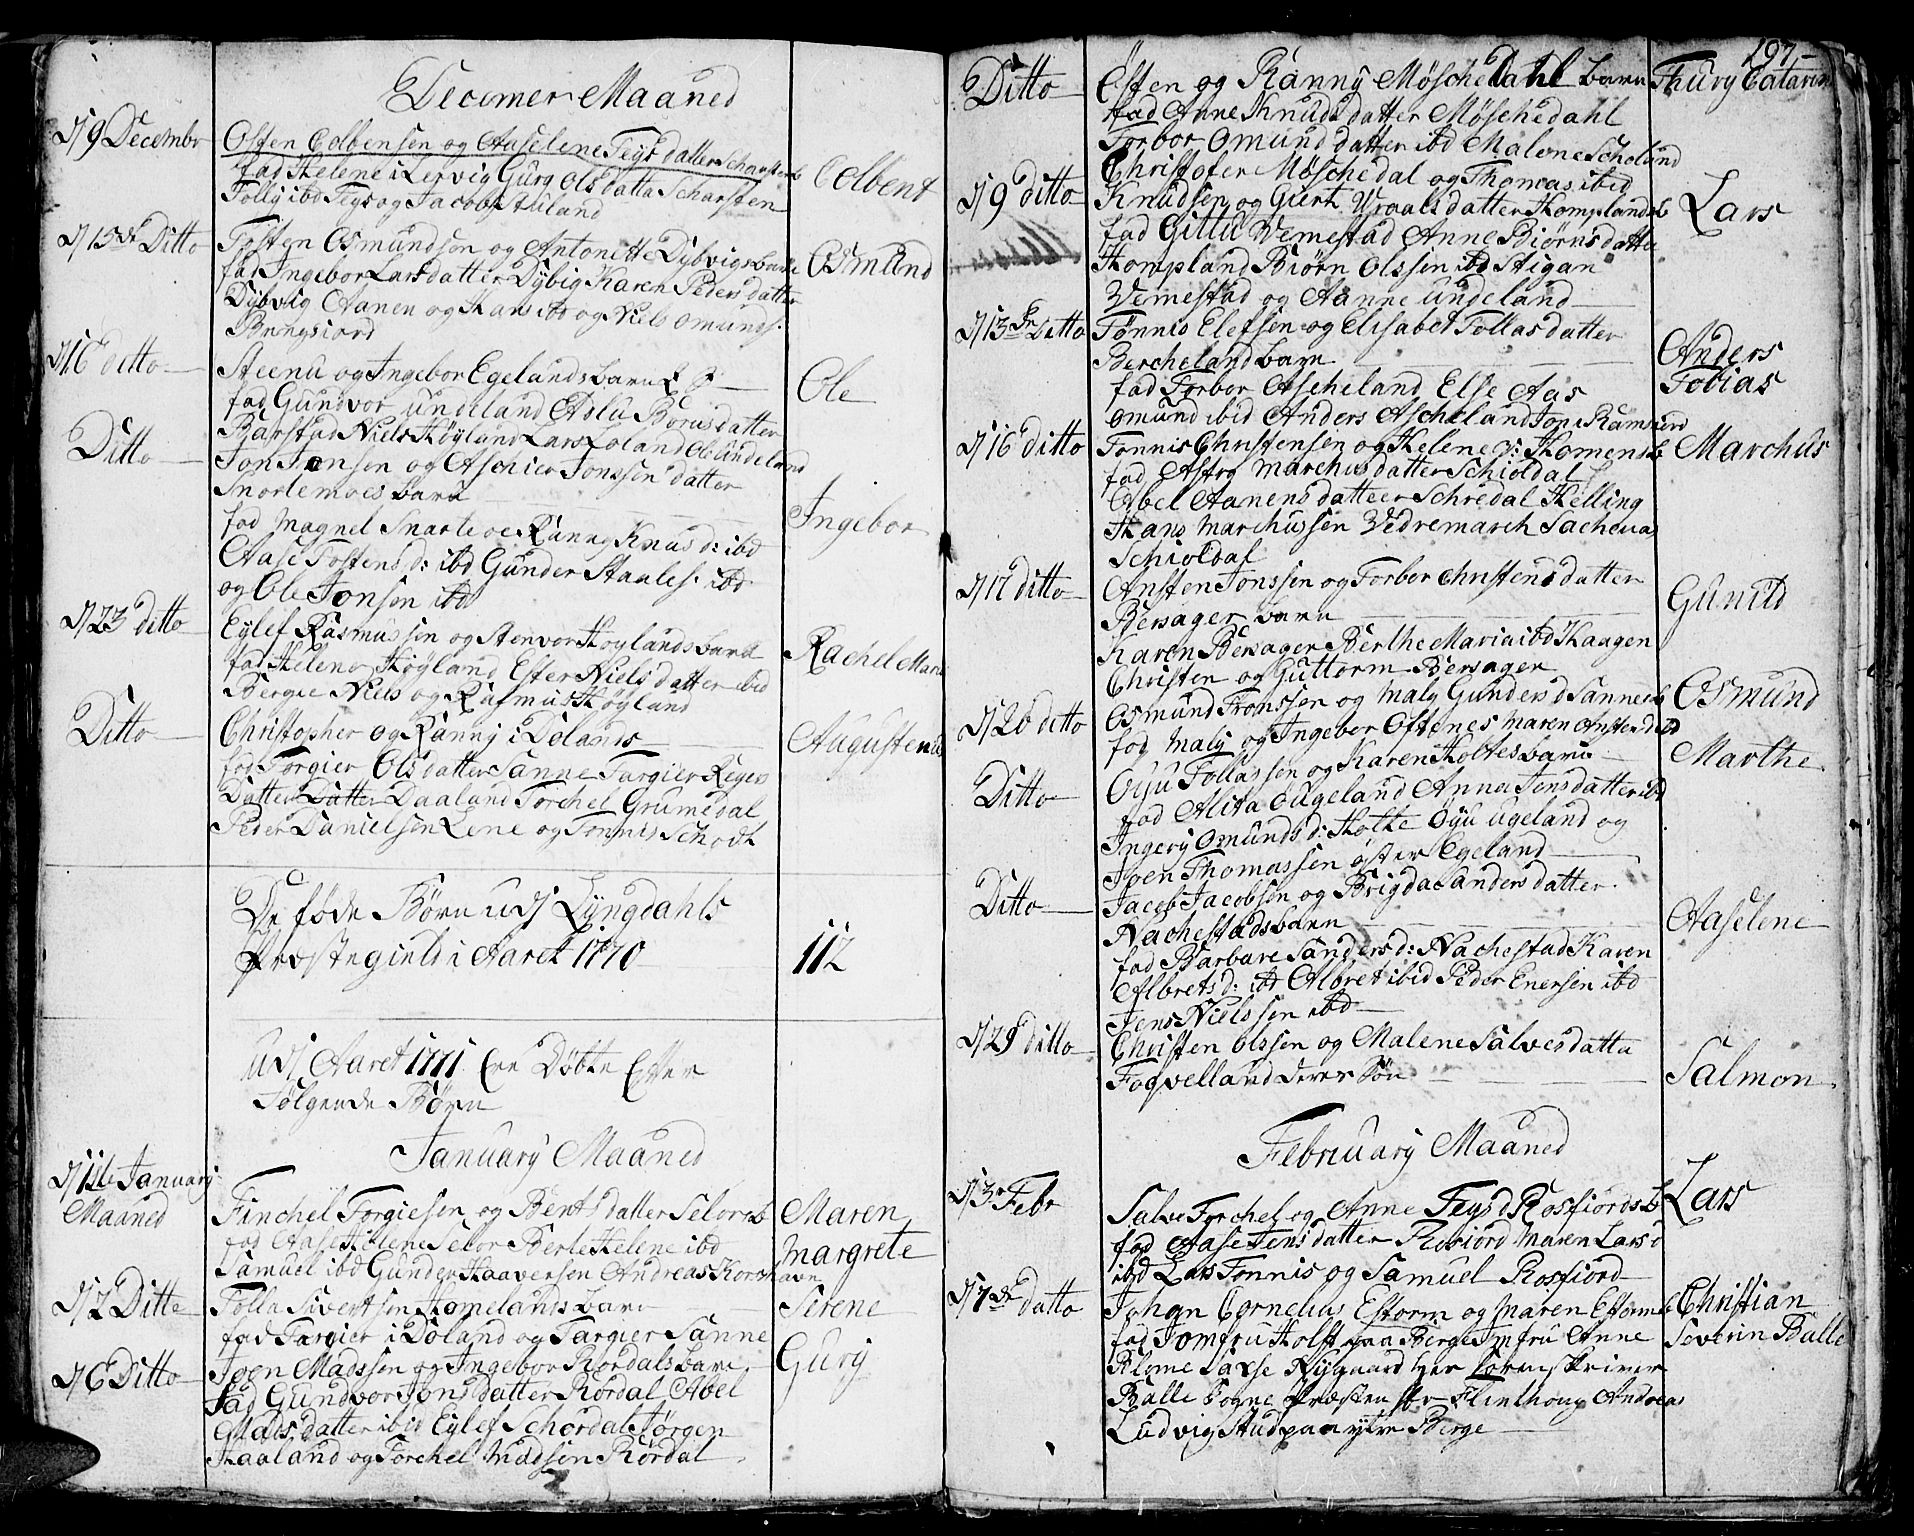 Decemer Maaned
d/ 9 Decembr
Osten Colbensen og Aaselene Teys datter Scharstens b
fad Helene i Lervig Gurg Ols datta Scharsten
Tollg ibd Teys og Jacob Auland
Colbent
d/ 15de Ditto
Tosten Osmundsen og Antonette Dybvigs barn
fad Ingebor Lars datter Dybig Karen Peders datter
Dybvig Aanen og Hans ibd og Niels omunds.
Osmund
d/ 16 ditto
Steenu og Ingebor Egelands barn
fad Gundvor undeland Aslu datter
Barstad Niels Høyland Lars Loland Ole undeland
Ole
Ditto
Jon Jonsen og Aschier Jonssen datter
Snortemoes barn
fad Magnel Snartemoe Ranng Knus d: ibd
Aase Tostens d: ibd Gunder Staales: ibd
og Ole Jonsen ibd
Ingebor
d/ 23 ditto
Eylef Rasmussen og Stenvor Høylands barn
fad Helene Høyland Ester Niels datter ibd
Bergie Niels og Rasmus Høyland
Rachel Maria
Ditto
Christopher og Ranny i Dolands
fad Torgier Ols datter Sanne Targier Reyers
Datter Datter Daaland Torchel Grumedal
Peder Danielsen Lene og Tønnis Schodt
Augustenus
De føde Børn udj Lyngdahls
Præstegield i Aaret 1770
112
udj Aaret 1771 Ere Døbte Efter
Følgende Børn
January Maaned
d/ 1ste January
Maaned
Finchel Torgiesen og Bents datter Selors b
fad Aase Helene Selor Berte Helene ibd
Samuel ibd Gunder Haaversen Andreas
Maren
Margrete
d/ 2 Ditto
Tolla Sivertsen Homelands barn
fad Targier i Doland og Targier Sanne
Serene
d/ 6 Ditto
Joen Madssen og Ingebor Rordals barn
fad Gundvor Jons datter Rordal Abel
Mads datter ibid Eylef Schordal Jørgen
Haaland og Torchel Madsen Rordal
Gurij
197
Ditto
Østen og Ranny Møschedahl barn
fad Anne Knuds datter Møschedahl
Torbor Omund datter ibd Malene Scholand
Christofer Møschedal og Thomas ibid
Thury Catarin
d/ 9 ditto
Knudsen og Giert Vraals datter Komplands b
fad Gittu Vemestad Anne Biørns datter
Kompland Biørn Olssen ibd Stigan
Vemestad og Aanne undeland
Lars
d/ 13de Ditto
Tønnis Elefsen og Elisabet Tollas datter
Bercheland barn
fad Torbor Ascheland Else Aas
omund ibid Anders Ascheland Jon Ramsiord
Anders
Tobias
d/ 16 ditto
Tonnis Christensen og Helene Homens b
fad Astrg Marchus datter Schioldal
Abel Aanens datteer Schredal Helling
Hans Marchussen Vedremarch Sacheua
Schioldal
Marchus
d/ 17 ditto
Ansten Jonssen og Torbor Christens datter
Bersager barn
Karen Bersager Berthe Maria ibd Haagen
Christen og Guttorm Bersager
Gunild
d/ 26 ditto
Osmund Tronssen og Malg Gunders d Sannes b
fad Malg og Ingebor Oftenes Maren
Osmund
Ditto
Oyu Tollassen og Karen Holtes barn
fad Alita ougeland Anne Jens datter ibd
Ingerij Omunds d: Holte Oyu ugeland og
Joen Thomassen øster Egeland
Marthe
Ditto
Jacob Jacobsen og Brigda Sanders datter
Nachestads barn
fad Barbare Sanders d: Nachestad Karen
Albrets d: ibd Albret ibid Peder Enersen ibd
Jens Nielssen ibd
Aaselene
d/ 29 ditto
Christen olssen og Malene Salves datta
Fogvelland deres Søn
Salmon
February Maaned
d/ 3 Febr
Salve Torchel og Anne Teys d Rosfiords b
fad Aase Jens datter Rosiord Maren Lars
ibd Lars Tonnis og Samuel Rosfiord
Lars
d/ 7de ditto
Johan Cornelius Estorm og Maren Estorms b
fad Jomfru Holst paa Berge Jmfru Anne
Nygaard Her Sorenskriver
Balle Sogne Præsten Hr Flinthoug Andreas
Ludvig Hud paa ytre Berge
Christian
Severin Balle